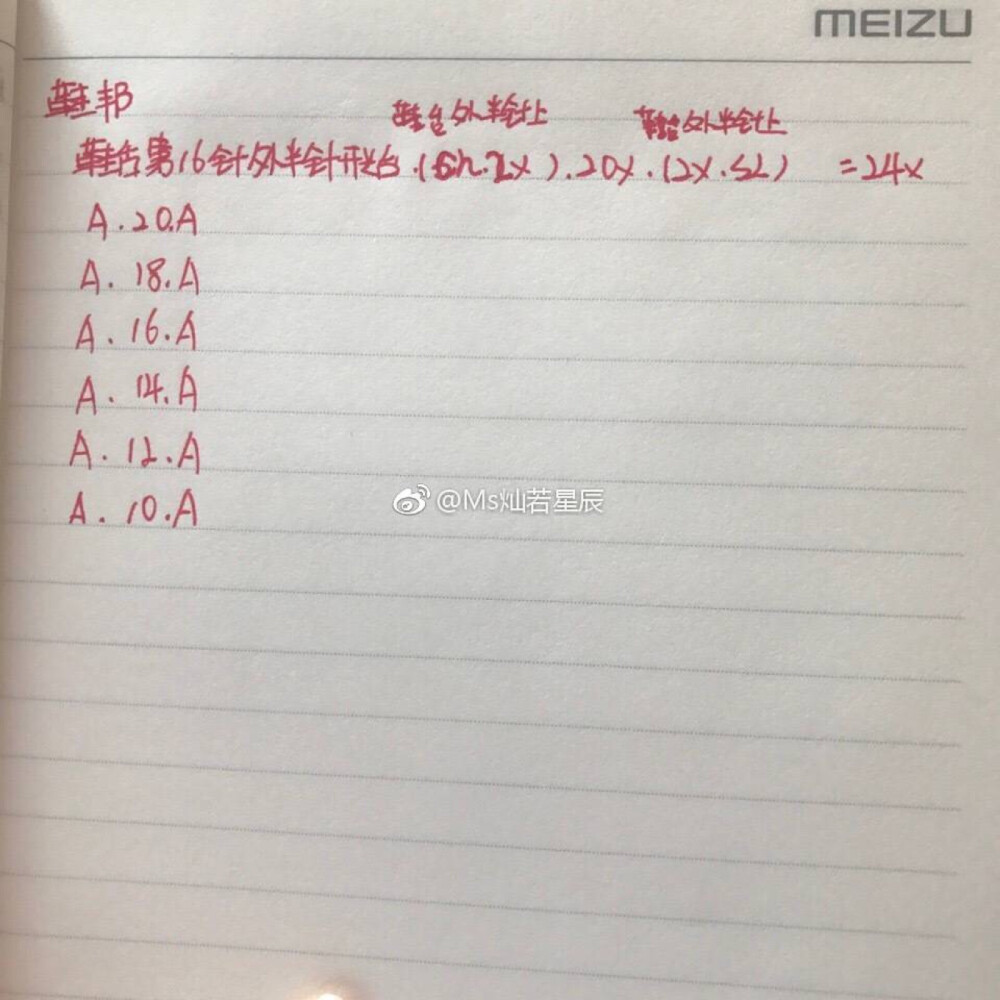 MEIZU
鞋邦
鞋舌外半针上 鞋舌外半针上
鞋舌第16针外半针开始.(SL.2X).20X.(2X.SL) =24X
A.20.A
A.18.A
A.16.A
A.14.A
A.12.A
A.10.A
@Ms灿若星辰